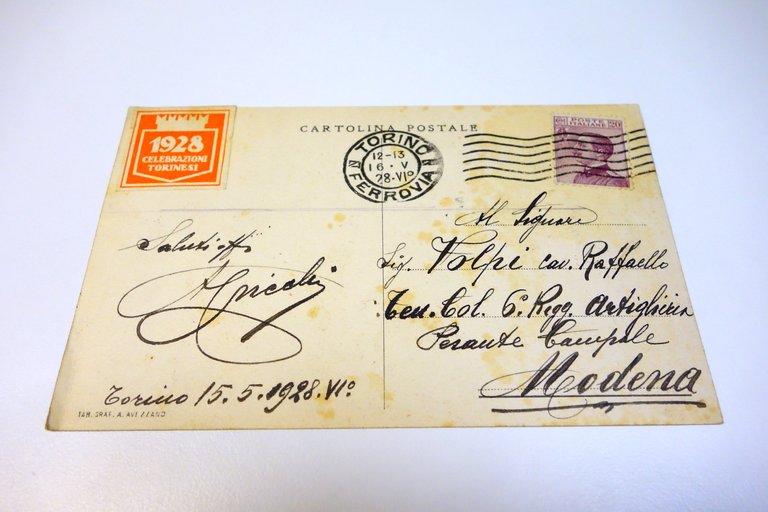 1928
CELEBRAZIONI
TORINESI
CARTOLINA POSTALE
TORINO
12-13
16·V
28·VIº
FERROVIA
POSTE
ITALIANE
20
Saluti aff
Al Signore
Sig. Volpi cav. Raffaello
Ten. Col. 6º Regg. Artiglieria
Pesante Campale
Modena
Torino 15.5.1928.VIº
TAB. GRAF. A. AVEZZANO